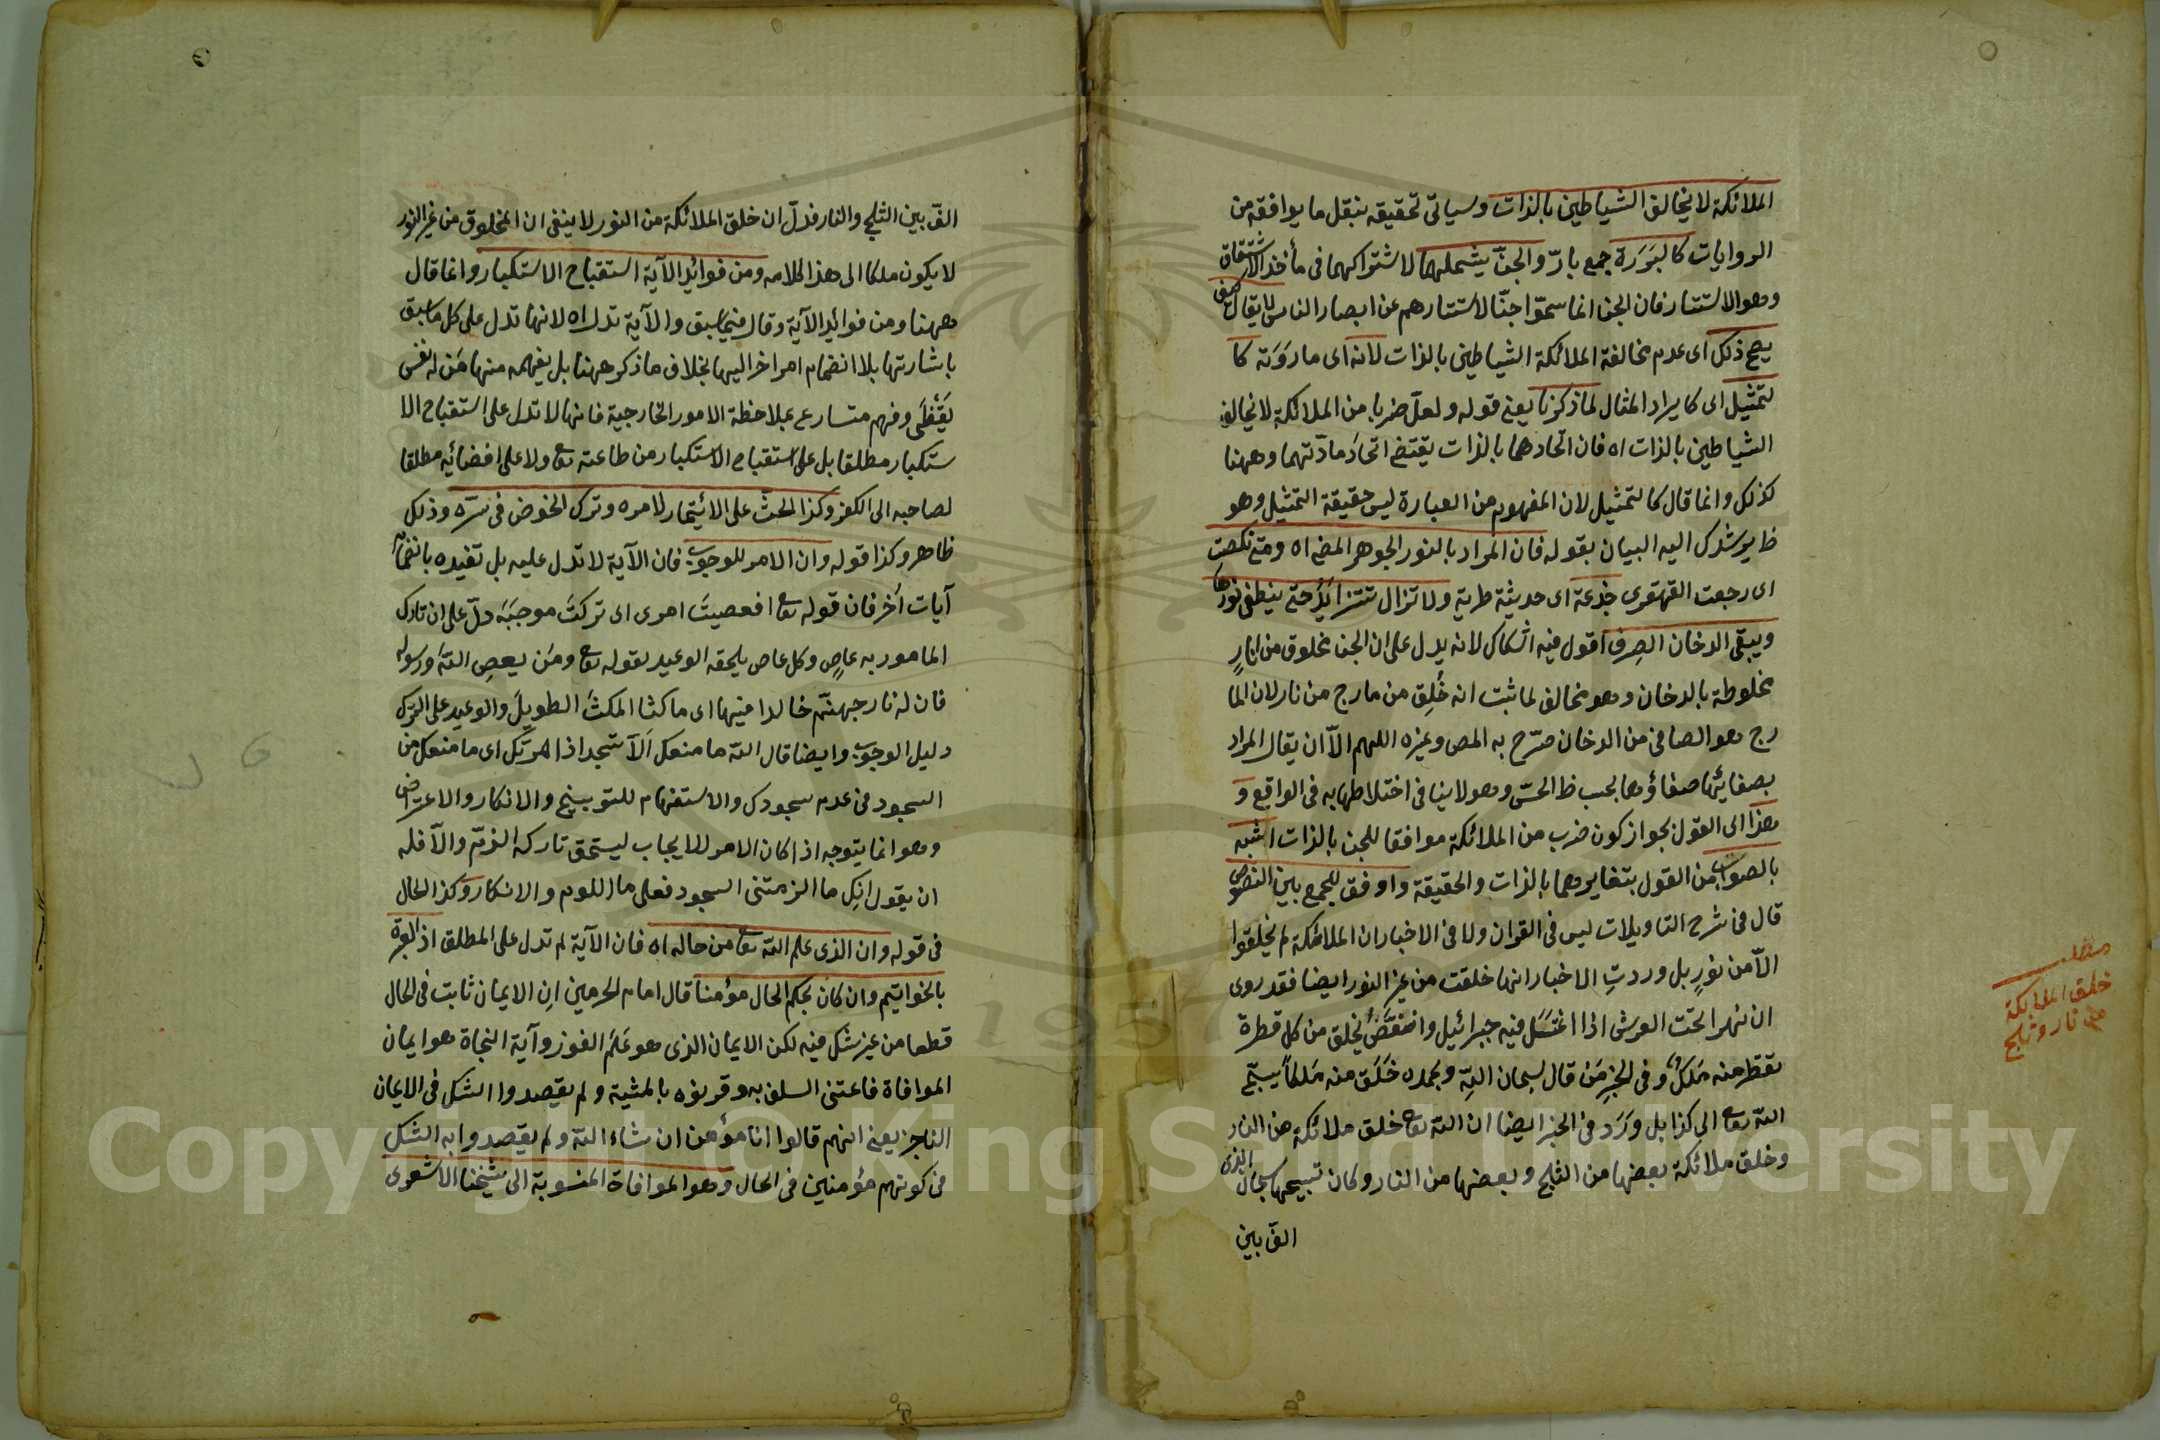 الملائكة لا يخالف الشياطين بالذات وسياتى تحقيقه بنقل ما يوافقه من
الروايات كالبَرَرة جمع بارّ والجنّ يشملهما لاشتراكهما فى مأخذ الاشتقاق
وهو الاستتار فان الجن انما سمّوا جنّا لاستتارهم عن ابصار الناس لا يقال كيف
يصح ذلك اى عدم مخالفة الملائكة الشياطين بالذات لانه اى ما رَوَته كا
لتمثيل اى كايراد المثال لما ذكرنا يعنى قوله ولعلّ ضربا من الملائكة لا يخالف
الشياطين بالذات اه فان اتحادهما بالذات يقتضى اتحادَ مادّتهما وههنا
كذلك وانما قال كالتمثيل لان المفهوم من العبارة ليس حقيقة التمثيل وهو
ظ يرشدك اليه البيان بقوله فان المراد بالنور الجوهر المضئ اه ومتى نكصت
اى رجعت القهقرى جَذعَة اى حديثة طرية ولا تزال تتزايَدُ حتى ينطفئ نورها
ويبقى الدخان الصِرف اقول فيه اشكال لانه يدل على ان الجن مخلوق من نارٍ
مخلوطة بالدخان وهو مخالف لما ثبت انه خُلِق من مارج من نار لان الما
رج هو الصافى من الدخان صرّح به المص وغيره اللهم الاّ ان يقال المراد
بصفائها صفاؤها بحسب ظ الحسّ وهو لا ينافى اختلاطها به فى الواقع و
هذا اى القول بجواز كون ضرب من الملائكة موافقا للجن بالذات اشبه
بالصواب من القول بتغايرهما بالذات والحقيقة واوفق للجمع بين النصوص
قال فى شرح التاويلات ليس فى القرآن ولا فى الاخبار ان الملائكة لم يخلقوا
الاّ من نورٍ بل وردتِ الاخبار انها خلقت من غير النور ايضا فقد روى
ان نهرا تحت العرش اذا اغتسَل فيه جبرائيل وانتفَضَ يخلق من كل قطرة
تقطر منه مَلَكٌ وفى الخبرِ مَن قال سبحان اللهِ وبحمده خَلَق منه مَلكاً يسبّح
الله تعا الى كذا بل وَرَد فى الخبر ايضا ان الله تعا خلق ملائكة من النار
وخلق ملائكة بعضها من الثلج وبعضها من النار وكان تسبيحها سبحان الذى
الفّ بين
مطلب
خلق الملائكة
من نار وثلج
الفّ بين الثلج والنار فدلّ ان خلق الملائكة من النور لا ينفى ان المخلوق من غير النور
لا يكون ملكا الى هنا كلامه ومن فوائد الآية استقباح الاستكبار وانما قال
ههنا ومن فوائد الآية وقال فيما سبق والآية تدل اه لانها تدل على كل ما سبق
باشارتها بلا انضمام امر اخر اليها بخلاف ما ذكر ههنا بل يفهمه منها مَن له نفس
يَقْظَى وفهم متسارع بملاحظة الامور الخارجية فانها لا تدل على استقباح الا
ستكبار مطلقا بل على استقباح الاستكبار من طاعته تعا ولا على افضائه مطلقا
لصاحبه الى الكفر وكذا الحثّ على الائتمار لامره وترك الخوض فى سرّه وذلك
ظاهر وكذا قوله وان الامر للوجوب فان الآية لا تدل عليه بل تفيده بانضمام
آيات اُخَر فان قوله تعا افعصيتَ امرى اى تركتَ موجبَهَ دلّ على ان تارك
المامور به عاصٍ وكل عاص يلحقه الوعيد بقوله تعا ومَن يعصِ اللهَ ورسوله
فان له نار جهنّم خالدا فيها اى ماكثا المكثَ الطويلَ والوعيد على الترك
دليل الوجوب وايضا قال الله ما منعك اَلاّ تسجد اذ امرتك اى ما منعك من
السجود فى عدم سجودك والاستفهام للتوبيخ والانكار والاعتراض
وهو انما يتوجه اذا كان الامر للايجاب ليستحق تاركه الذمّ والاّ فله
ان يقول اِنك ما الزمتنى السجود فعلى ما اللوم والانكار وكذا الحال
فى قوله وان الذى علم الله تعا من حاله اه فان الآية لم تدل على المطلق اذ العبرة
بالخواتيم وان كان بحكم الحال مؤمنا قال امام الحرمين ان الايمان ثابت فى الحال
قطعا من غير شك فيه لكن الايمان الذى هو عَلَم الفوز وآية النجاة هو ايمان
الموافاة فاعتنى السلف به وقرنوه بالمشية ولم يقصدوا الشك فى الايمان
الناجز يعنى انهم قالوا انا مؤمن ان شاء الله ولم يقصدوا به الشك
فى كونهم مؤمنين فى الحال وهو الموافاة المنسوبة الى شيخنا الاشعرى
1957
Copyright © King Saud University